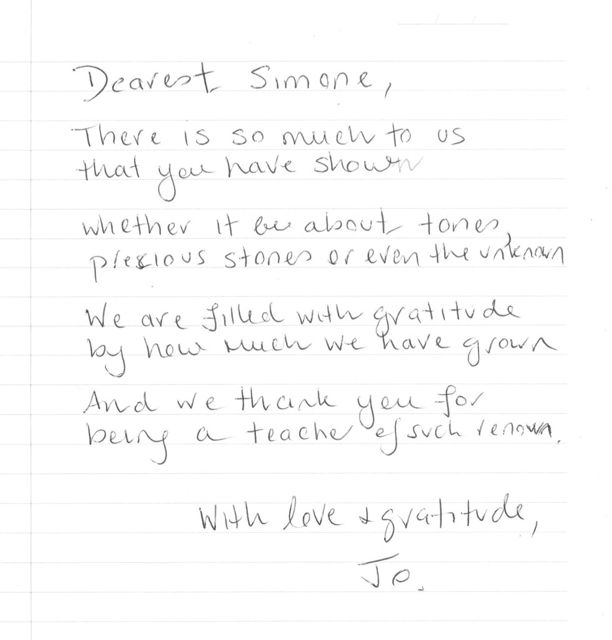 Dearest Simone,
There is so much to us
that you have shown
whether it be about tones,
precious stones or even the unknown
We are filled with gratitude
by how much we have grown
And we thank you for
being a teacher of such renown.
With love & gratitude,
Jo.